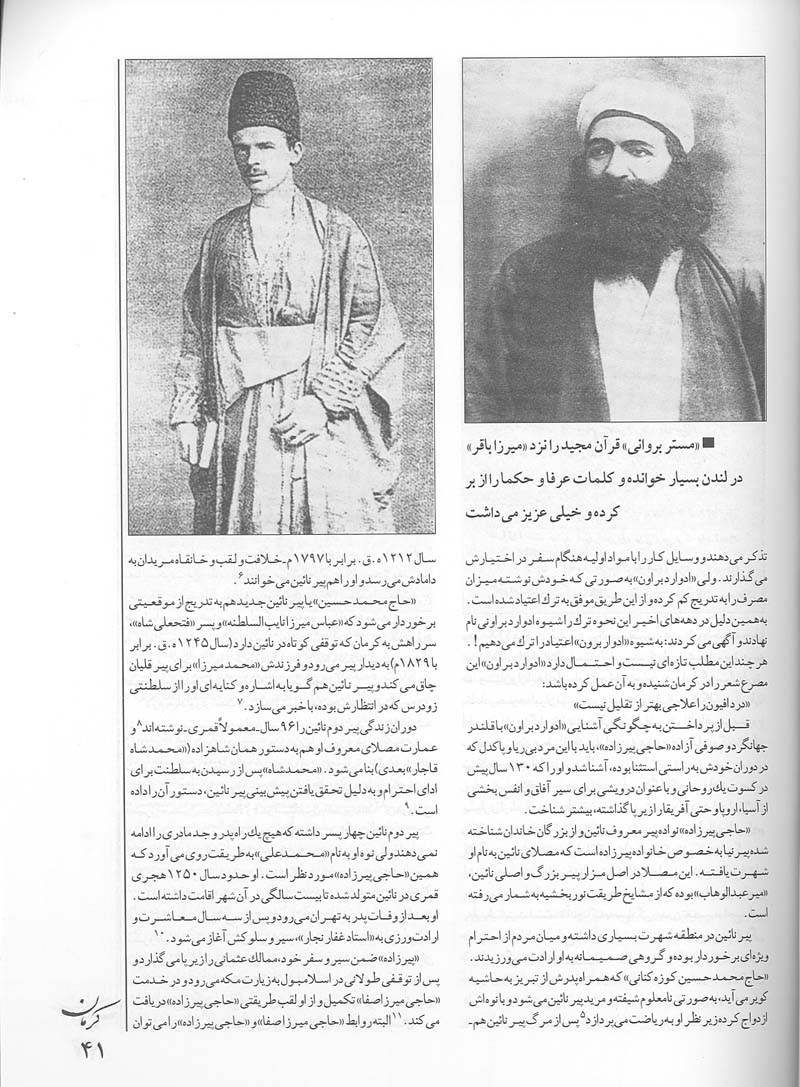 ■ «مستر بروانی» قرآن مجید را نزد «میرزا باقر»
در لندن بسیار خوانده و کلمات عرفا و حکما را از بر
کرده و خیلی عزیز می‌داشت
تذکر می‌دهند و وسایل کار را با مواد اولیه هنگام سفر در اختیارش
می‌گذارند. ولی «ادوارد براون» به صورتی که خودش نوشته میزان
مصرف را به تدریج کم کرده و از این طریق موفق به ترك اعتیاد شده است.
به همین دلیل در دهه‌های اخیر این نحوه ترك را شیوه ادوارد براونی نام
نهادند و آگهی می‌کردند: به شیوه «ادوارد برون» اعتیاد را ترك می‌دهیم!.
هر چند این مطلب تازه‌ای نیست و احتمال دارد «ادوارد براون» این
مصرع شعر را در کرمان شنیده و به آن عمل کرده باشد:
«درد افیون را علاجی بهتر از تقلیل نیست»
قبل از پرداختن به چگونگی آشنایی «ادوارد براون» با قلندر
جهانگرد و صوفی آزاده «حاجی پیرزاده»، باید با این مرد بی‌ریا و پاکدل که
در دوران خودش به راستی استثنا بوده، آشنا شد و او را که ۱۳۰ سال پیش
در کسوت یك روحانی و با عنوان درویشی برای سیر آفاق و انفس بخشی
از آسیا، اروپا و حتی آفریقا را زیر پا گذاشته، بیشتر شناخت.
«حاجی پیرزاده» نواده پیر معروف نائین و از بزرگان خاندان شناخته
شده پیرنیا به خصوص خانواده پیرزاده است که مصلای نائین به نام او
شهرت یافته. این مصلا در اصل مزار پیر بزرگ و اصلی نائین،
«میر عبدالوهاب» بوده که از مشایخ طریقت نوربخشیه به شمار می‌رفته
است.
پیر نائین در منطقه شهرت بسیاری داشته و میان مردم از احترام
ویژه‌ای برخوردار بوده و گروهی صمیمانه به او ارادت می‌ورزیدند.
«حاج محمدحسین کوزه کنانی» که همراه پدرش از تبریز به حاشیه
کویر می‌آید، به صورتی نامعلوم شیفته و مرید پیر نائین می‌شود و با نوه‌اش
ازدواج کرده زیر نظر او به ریاضت می‌پردازد۵ پس از مرگ پیر نائین هم-
سال ۱۲۱۲ ه.ق. برابر با ۱۷۹۷م-خلافت و لقب و خانقاه مریدان به
دامادش می‌رسد و او را هم پیر نائین می‌خوانند۶.
«حاج محمدحسین» یا پیر نائین جدید هم به تدریج از موقعیتی
برخوردار می‌شود که «عباس میرزا نایب السلطنه» و پسر «فتحعلی شاه»،
سر راهش به کرمان که توقفی کوتاه در نائین دارد (سال ۱۲۴۵ ه.ق. برابر
با ۱۸۲۹م) به دیدار پیر می‌رود و فرزندش «محمد میرزا» برای پیر قلیان
چاق می‌کند و پیر نائین هم گویا به اشاره و کنایه‌ای او را از سلطنتی
زودرس که در انتظارش بوده، با خبر می‌سازد.۷
دوران زندگی پیر دوم نائین را ۹۶ سال-معمولاً قمری-نوشته‌اند۸ و
عمارت مصلای معروف او هم به دستور همان شاهزاده («محمدشاه
قاجار» بعدی) بنا می‌شود. «محمدشاه» پس از رسیدن به سلطنت برای
ادای احترام و به دلیل تحقق یافتن پیش بینی پیر نائین، دستور آن را داده
است.۹
پیر دوم نائین چهار پسر داشته که هیچ یك راه پدر و جد مادری را ادامه
نمی‌دهند ولی نوه او به نام «محمدعلی» به طریقت روی می‌آورد که
همین «حاجی پیرزاده» مورد نظر است. او حدود سال ۱۲۵۰ هجری
قمری در نائین متولد شده تا بیست سالگی در آن شهر اقامت داشته است.
او بعد از وفات پدر به تهران می‌رود و پس از سه سال معاشرت و
ارادت ورزی به «استاد غفار نجار»، سیر و سلوکش آغاز می‌شود.۱۰
«پیرزاده» ضمن سیر و سفر خود، ممالك عثمانی را زیر پا می‌گذارد و
پس از توقفی طولانی در اسلامبول به زیارت مکه می‌رود و در خدمت
«حاجی میرزا صفا» تکمیل و از او لقب طریقتی «حاجی پیرزاده» دریافت
می‌کند.۱۱ البته روابط «حاجی میرزا صفا» و «حاجی پیرزاده» را می‌توان
کرمان
۴۱